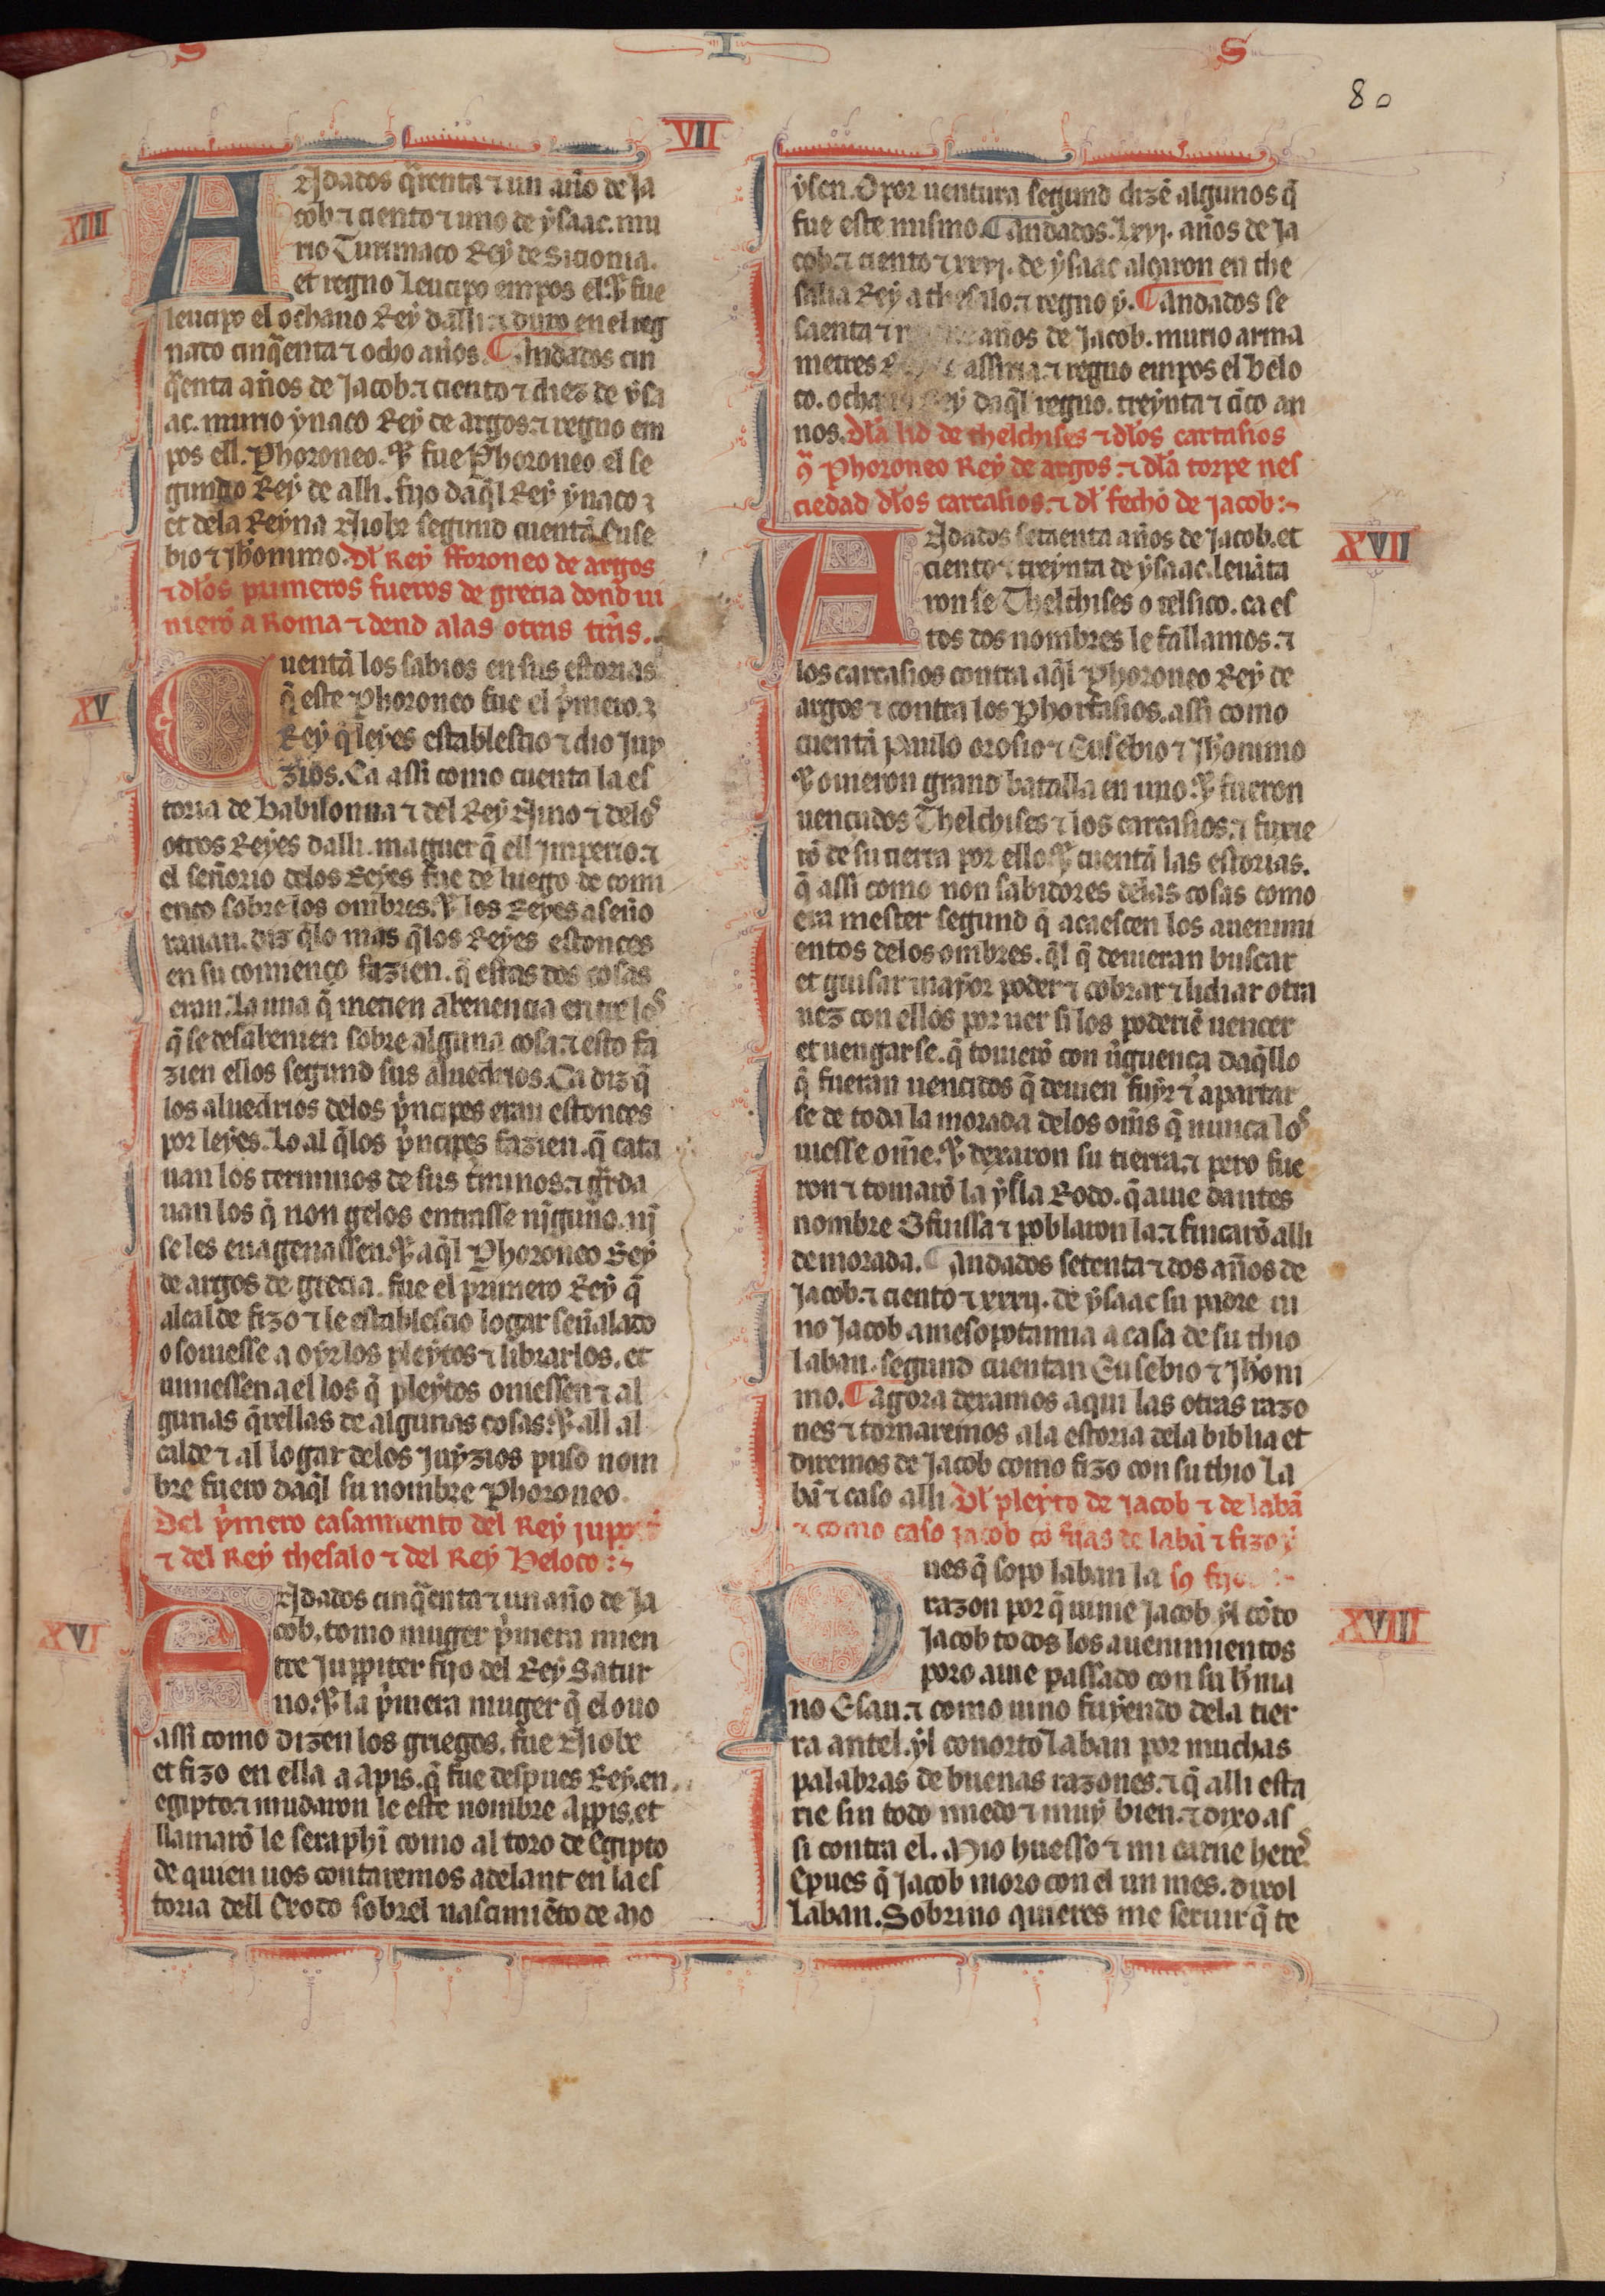 S I S
80
VII
XIII
ANdados q̃renta ⁊ un año de Ja
cob ⁊ ciento ⁊ uno de ẏsaac. mu
rio Turimaco Reẏ de Sicionia.
et regno Leucipo empos el. ⁊ fue
leucipo el ochauo Reẏ dalli ⁊ duro en el reg
nado cinq̃enta ⁊ ocho años. ¶ Andados cin
q̃enta años de Jacob. ⁊ ciento ⁊ diez de ẏsa
ac. murio ẏnaco Reẏ de argos. ⁊ regno em
pos ell. Phoroneo. ⁊ fue Phoroneo el se
gundo Reẏ de alli. fijo daq̃l Reẏ ẏnaco ⁊
et dela Reẏna Niobe segund cuentã Euse
bio ⁊ Jheronimo. Dl̃ Reẏ fforoneo de argos
⁊ dl̃os primeros fueros de grecia dond ui
nierõ a Roma ⁊ dend alas otras tr̃as.
XV
Cuentã los sabios en sus estorias
q̃ este Phoroneo fue el p̃mero
Reẏ q̃ leẏes establescio ⁊ dio Juẏ
zios. Ca assi como cuenta la es
toria de babilonna ⁊ del Reẏ Nino ⁊ delos
otros Reẏes dalli. maguer q̃ ell Jmperio. ⁊
el señorio delos Reẏes fue de luego de comi
enço sobre los ombres. ⁊ los Reẏes aseño
rauan. diz q̃lo mas q̃los Reẏes estonces
en su comienço fazien. q̃ estas dos cosas
eran. La una q̃ metien abenencia entre los
q̃ se desabenien sobre alguna cosa. ⁊ esto fa
zien ellos segund sus aluedrios. Ca diz q̃
los aluedrios delos p̃ncipes eran estonces
por leẏes. Lo al q̃los p̃ncipes fazien. q̃ cata
uan los terminos de sus t̃minos. ⁊ g̃rda
uan los q̃ non gelos entrasse njguno. nj
seles enagenassen. ⁊ aq̃l Phoroneo Reẏ
de argos de grecia. fue el primero Reẏ q̃
alcalde fizo ⁊ le establescio logar señalado
o souiesse a oẏr los pleẏtos ⁊ librarlos. et
uiniessen a el los q̃ pleẏtos ouiessen ⁊ al
gunas q̃rellas de algunas cosas. ⁊ all al
calde ⁊ al logar delos Juẏzios puso nom
bre fuero daq̃l su nombre Phoroneo.
Del p̃mero casamiento del Reẏ jupiter
⁊ del Reẏ thesalo ⁊ del Reẏ Beloco:
XVI
ANdados cinq̃enta ⁊ un año de Ja
cob. tomo muger p̃mera mien
tre Juppiter fijo del Reẏ Satur
no. ⁊ la p̃mera muger q̃ el ouo
assi como dizen los griegos. fue Niobe
et fizo en ella a Apis. q̃ fue despues Reẏ. en
egipto. ⁊ mudaron le este nombre Appis. et
llamarõ le seraphĩ como al toro de Egipto
de quien uos contaremos adelant en la es
toria dell Exodo sobrel nascimiẽto de Mo
ẏsen. O por uentura segund dizẽ algunos q̃
fue este mismo. ¶ Andados. Lxvj. años de Ja
cob. ⁊ ciento ⁊ xxvj. de ẏsaac alçaron en the
salia Reẏ a thesalo. ⁊ regno ẏ. ¶ Andados se
saenta ⁊ años de Jacob. murio arma
metres assiria. ⁊ regno empos el belo
co. ochauo Reẏ daq̃l regno. treẏnta ⁊ cĩco an
nos. Dl̃a lid de thelchises ⁊ dl̃os cartasios
⁊ Phoroneo Reẏ de argos. ⁊ dl̃a torpe nes
ciedad dl̃os carcasios. ⁊ dl̃ fecho de jacob:
XVII
ANdados setaenta años de Jacob. et
ciento ⁊ treẏnta de ẏsaac. leuãta
ron se Thelchises o telsico. ca es
tos dos nombres le fallamos. ⁊
los carcasios contra aq̃l Phoroneo Reẏ de
argos ⁊ contra los Phorcasios. assi como
cuentã Paulo orosio ⁊ Eusebio ⁊ Jheronimo
⁊ ouieron grand batalla en uno. ⁊ fueron
uençudos Thelchises ⁊ los carcasios. ⁊ fuxie
rõ de su tierra por ello. ⁊ cuentã las estorias.
q̃ assi como non sabidores delas cosas como
era mester segund q̃ acaescen los auenimi
entos delos ombres. q̃l q̃ deuieran buscar
et guisar maẏor poder ⁊ cobrar ⁊ lidiar otra
uez con ellos por uer si los poderiẽ uencer
et uengarse. q̃ touierõ con ũguença daq̃llo
q̃ fueran uencidos q̃ deuien fuẏr ⁊ apartar
se de toda la morada delos om̃s q̃ nunca los
uiesse om̃e. ⁊ dexaron su tierra. ⁊ pero fue
ron ⁊ tomarõ la ẏsla Rodo. q̃ auie dantes
nombre Ofiussa ⁊ poblaron la. ⁊ fincarõ alli
de morada. ¶ Andados setenta ⁊ dos años de
Jacob. ⁊ ciento ⁊ xxxij. de ẏsaac su padre ui
no Jacob a mesopotamia a casa de su thio
laban. segund cuentan Eusebio ⁊ Jheroni
mo. ¶ Agora dexamos aqui las otras razo
nes ⁊ tornaremos ala estoria dela biblia et
diremos de Jacob como fizo con su thio La
bã ⁊ caso alli. Dl̃ pleẏto de jacob ⁊ de labã
⁊ como caso jacob cõ fijas de labã ⁊ fizo ẏ
XVIII
Pues q̃ sopo laban la
razon por q̃ uinie Jacob ẏl cõto
Jacob todos los auenimientos
poro auie passado con su h̃ma
no Esau. ⁊ como uino fuẏendo dela tier
ra antel. ẏl conorto Laban por muchas
palabras de buenas razones. ⁊ q̃ alli esta
rie sin todo miedo ⁊ muẏ bien. ⁊ dixo as
si contra el. Mio huesso ⁊ mi carne heres
Epues q̃ Jacob moro con el un mes. dixol
Laban. Sobrino quieres me seruir q̃ te